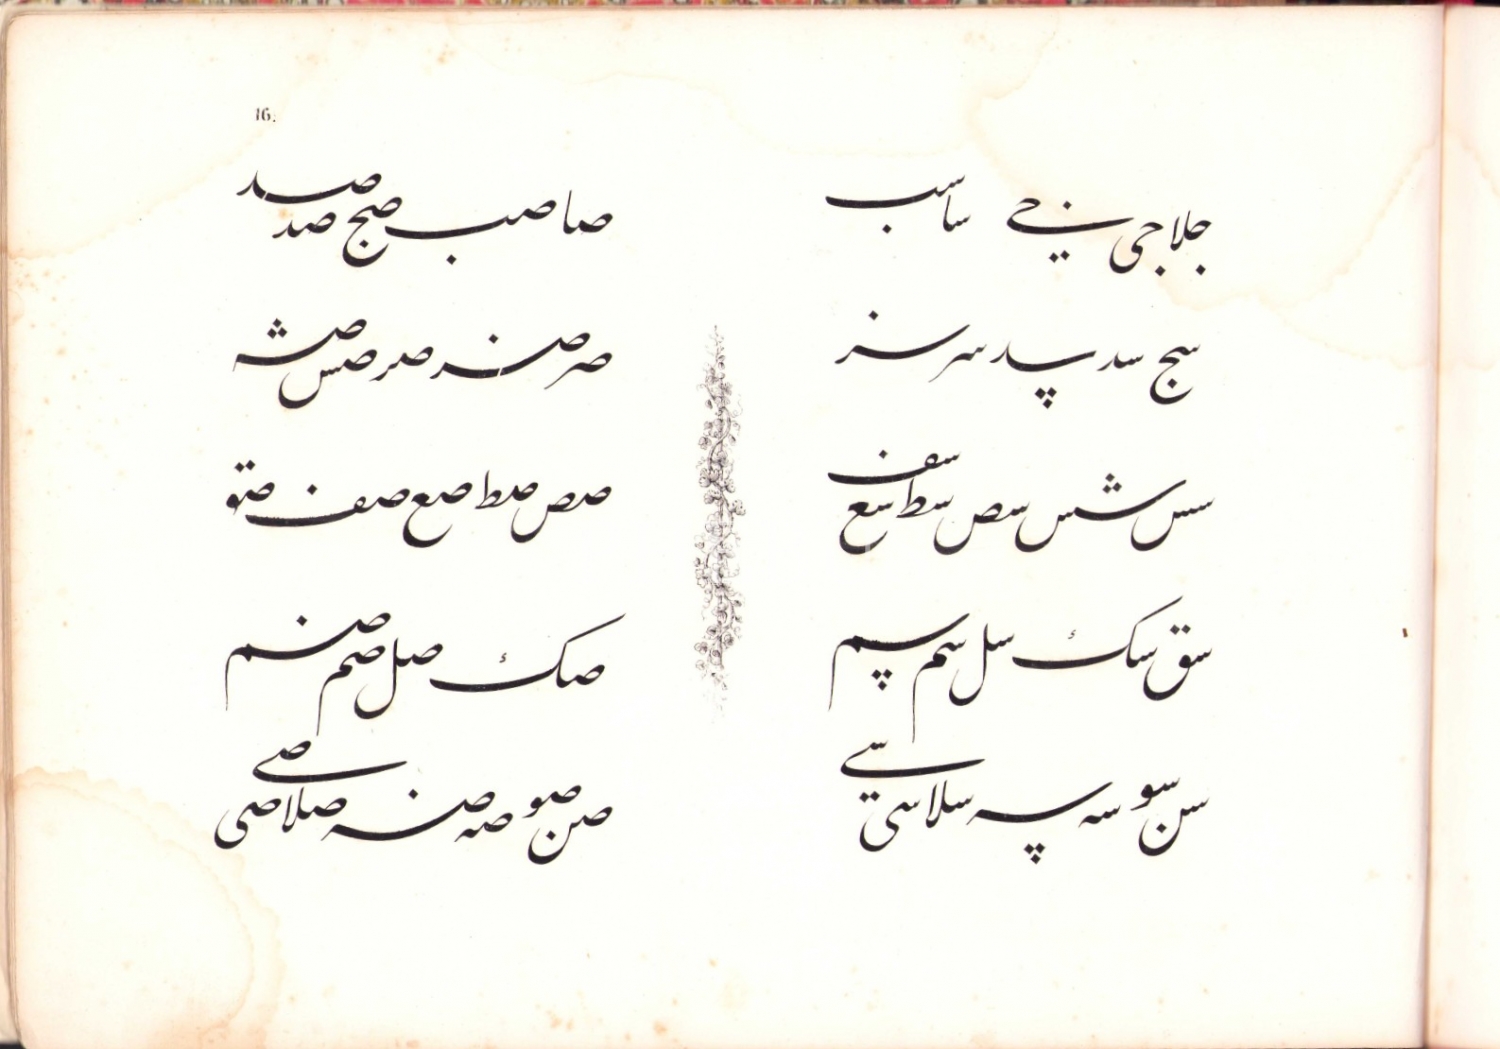 16.
جلا جی نچے سا سب
سج سد پد سر سز
سس شس سص سط سع سف
سق سک سل سم پم
سن سو سه په سلا سی سے
صا صب صج صد صد
صر صر صس
صص صط صع صف صو
صک صل صم صنم
صن صو صه صنه صلا صی صے